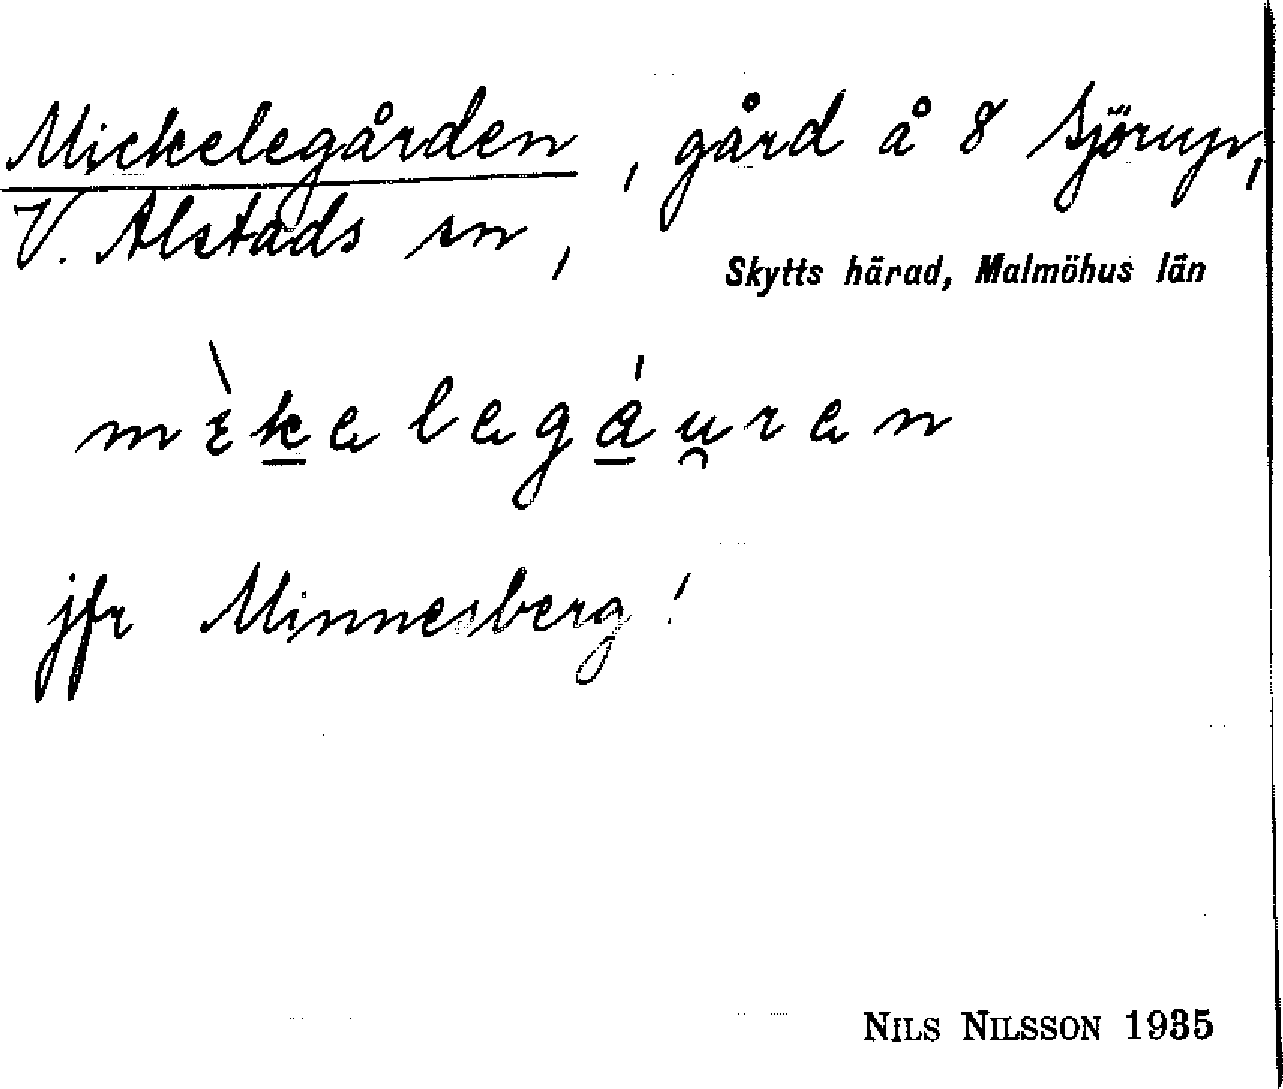 Mickelegården, gård å 8 Sjörup,
V. Alstads sn,
Skytts härad, Malmöhus län
mìkelegáu̯ren
jfr Minnesberg!
NILS NILSSON 1935